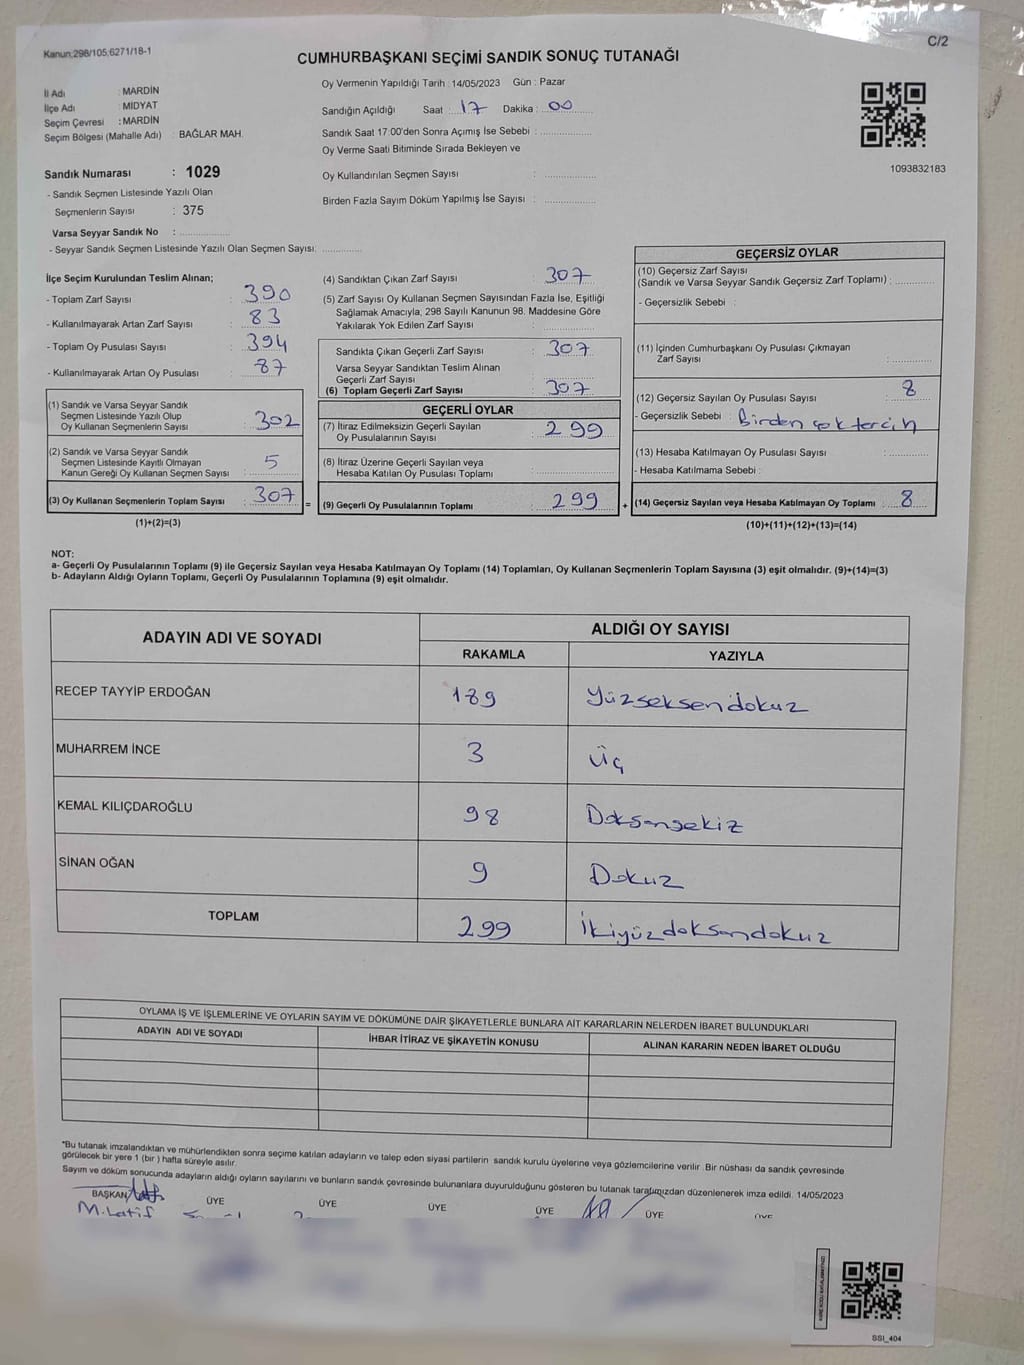 Kanun;298/105;6271/18-1
C/2
CUMHURBAŞKANI SEÇİMİ SANDIK SONUÇ TUTANAĞI
İl Adı : MARDİN
İlçe Adı : MİDYAT
Seçim Çevresi : MARDİN
Seçim Bölgesi (Mahalle Adı) : BAĞLAR MAH.
Oy Vermenin Yapıldığı Tarih : 14/05/2023 Gün : Pazar
Sandığın Açıldığı Saat : 17 Dakika : 00
Sandık Saat 17:00'den Sonra Açımış İse Sebebi :
Oy Verme Saati Bitiminde Sırada Bekleyen ve
Oy Kullandırılan Seçmen Sayısı :
Birden Fazla Sayım Döküm Yapılmış İse Sayısı :
1093832183
Sandık Numarası : 1029
- Sandık Seçmen Listesinde Yazılı Olan
Seçmenlerin Sayısı : 375
Varsa Seyyar Sandık No :
- Seyyar Sandık Seçmen Listesinde Yazılı Olan Seçmen Sayısı:
İlçe Seçim Kurulundan Teslim Alınan;
- Toplam Zarf Sayısı : 390
- Kullanılmayarak Artan Zarf Sayısı : 83
- Toplam Oy Pusulası Sayısı : 394
- Kullanılmayarak Artan Oy Pusulası : 87
(1) Sandık ve Varsa Seyyar Sandık
Seçmen Listesinde Yazılı Olup
Oy Kullanan Seçmenlerin Sayısı : 302
(2) Sandık ve Varsa Seyyar Sandık
Seçmen Listesinde Kayıtlı Olmayan
Kanun Gereği Oy Kullanan Seçmen Sayısı : 5
(3) Oy Kullanan Seçmenlerin Toplam Sayısı : 307 =
(1)+(2)=(3)
(4) Sandıktan Çıkan Zarf Sayısı : 307
(5) Zarf Sayısı Oy Kullanan Seçmen Sayısından Fazla İse, Eşitliği
Sağlamak Amacıyla; 298 Sayılı Kanunun 98. Maddesine Göre
Yakılarak Yok Edilen Zarf Sayısı :
Sandıkta Çıkan Geçerli Zarf Sayısı : 307
Varsa Seyyar Sandıktan Teslim Alınan
Geçerli Zarf Sayısı :
(6) Toplam Geçerli Zarf Sayısı : 307
GEÇERLİ OYLAR
(7) İtiraz Edilmeksizin Geçerli Sayılan
Oy Pusulalarının Sayısı : 299
(8) İtiraz Üzerine Geçerli Sayılan veya
Hesaba Katılan Oy Pusulası Toplamı :
(9) Geçerli Oy Pusulalarının Toplamı : 299 +
GEÇERSİZ OYLAR
(10) Geçersiz Zarf Sayısı
(Sandık ve Varsa Seyyar Sandık Geçersiz Zarf Toplamı) :
- Geçersizlik Sebebi :
(11) İçinden Cumhurbaşkanı Oy Pusulası Çıkmayan
Zarf Sayısı :
(12) Geçersiz Sayılan Oy Pusulası Sayısı : 8
- Geçersizlik Sebebi : Birden çok tercih
(13) Hesaba Katılmayan Oy Pusulası Sayısı :
- Hesaba Katılmama Sebebi :
(14) Geçersiz Sayılan veya Hesaba Katılmayan Oy Toplamı : 8
(10)+(11)+(12)+(13)=(14)
NOT:
a- Geçerli Oy Pusulalarının Toplamı (9) ile Geçersiz Sayılan veya Hesaba Katılmayan Oy Toplamı (14) Toplamları, Oy Kullanan Seçmenlerin Toplam Sayısına (3) eşit olmalıdır. (9)+(14)=(3)
b- Adayların Aldığı Oyların Toplamı, Geçerli Oy Pusulalarının Toplamına (9) eşit olmalıdır.
ADAYIN ADI VE SOYADI
ALDIĞI OY SAYISI
RAKAMLA YAZIYLA
RECEP TAYYİP ERDOĞAN 189 Yüzseksendokuz
MUHARREM İNCE 3 Üç
KEMAL KILIÇDAROĞLU 98 Doksansekiz
SİNAN OĞAN 9 Dokuz
TOPLAM 299 İkiyüzdoksandokuz
OYLAMA İŞ VE İŞLEMLERİNE VE OYLARIN SAYIM VE DÖKÜMÜNE DAİR ŞİKAYETLERLE BUNLARA AİT KARARLARIN NELERDEN İBARET BULUNDUKLARI
ADAYIN ADI VE SOYADI İHBAR İTİRAZ VE ŞİKAYETİN KONUSU ALINAN KARARIN NEDEN İBARET OLDUĞU
*Bu tutanak imzalandıktan ve mühürlendikten sonra seçime katılan adayların ve talep eden siyasi partilerin sandık kurulu üyelerine veya gözlemcilerine verilir. Bir nüshası da sandık çevresinde
görülecek bir yere 1 (bir) hafta süreyle asılır.
Sayım ve döküm sonucunda adayların aldığı oyların sayılarını ve bunların sandık çevresinde bulunanlara duyurulduğunu gösteren bu tutanak tarafımızdan düzenlenerek imza edildi. 14/05/2023
BAŞKAN ÜYE ÜYE ÜYE ÜYE ÜYE ÜYE
M.Latif
SSI_404